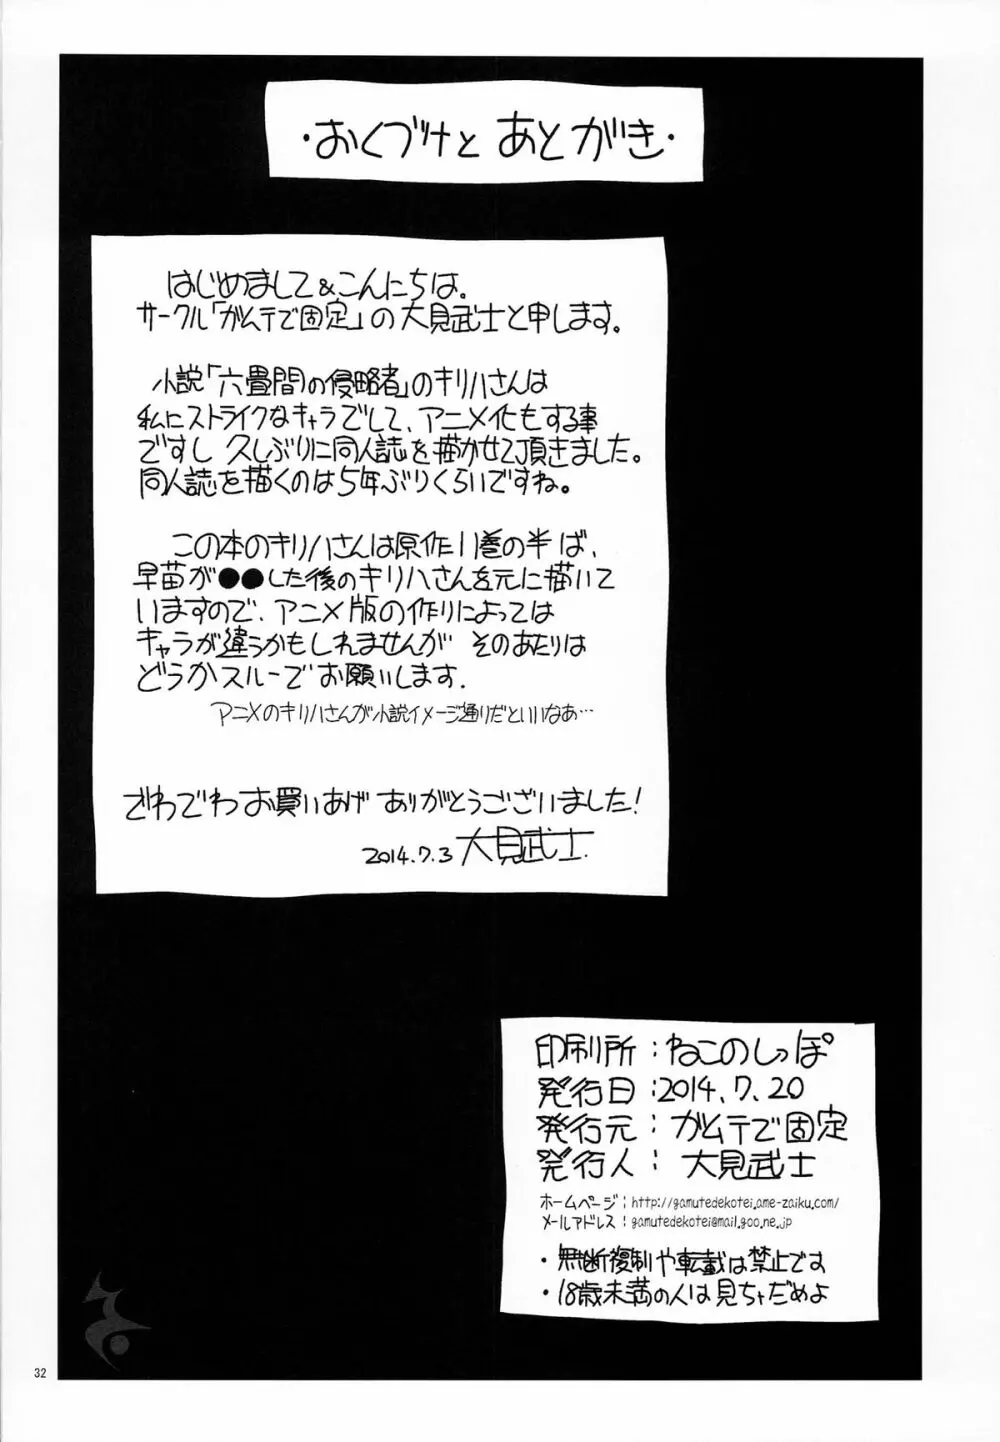 ・おくづけと あとがき・
はじめまして&こんにちは。
サークル「ガムテで固定」の大見武士と申します。
小説「六畳間の侵略者」のキリハさんは
私にストライクなキャラでして、アニメ化もする事
ですし 久しぶりに同人誌を描かせて頂きました。
同人誌を描くのは5年ぶりくらいですね。
この本のキリハさんは原作11巻の半ば、
早苗が●●した後のキリハさんを元に描いて
いますので、アニメ版の作りによっては
キャラが違うかもしれませんが そのあたりは
どうかスルーでお願いします.
アニメのキリハさんが小説イメージ通りだといいなあ…
でわでわお買いあげ ありがとうございました!
2014.7.3 大見武士.
印刷所:ねこのしっぽ
発行日:2014.7.20
発行元:ガムテで固定
発行人: 大見武士
ホームページ:http://gamutedekotei.ame-zaiku.com/
メールアドレス:gamutedekotei@mail.goo.ne.jp
・無断複制や転載は禁止です
・18歳未満の人は見ちゃだめよ
32